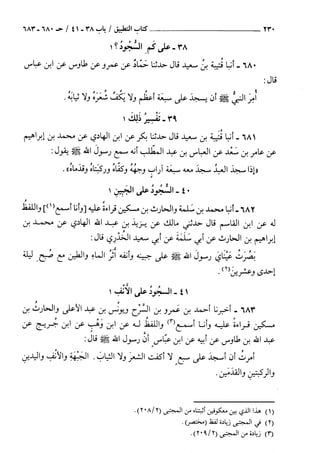 ٢٣٠ ـــــ كتاب التطبيق / باب ٣٨ - ٤١ / حـ ٦٨٠ - ٦٨٣
٣٨ - على كم السُّجُودُ؟ ١
٦٨٠ - أنبا قُتيبة بنُ سعيد قال حدثنا حَمّادٌ عن عمرو عن طاوس عن ابن عباس
قال :
أُمِرَ النبيُّ ﷺ أن يسجد على سبعة أعظُم ولا يَكُفَّ شَعْرَهُ ولا ثيابَهُ .
٣٩ - تَفْسيرُ ذَلِكَ ١
٦٨١ - أنبا قتيبة بن سعيد قال حدثنا بكر عن ابن الهادي عن محمد بن إبراهيم
عن عامر بن سَعْد عن العباس بن عبد المطلب أنه سمع رسول الله ﷺ يقول :
«إذا سجد العبدُ سجد معه سبعة آرابٍ وجهُهُ وكفّاهُ وركبَتاهُ وقدَماهُ» .
٤٠ - السُّجُودُ على الجَبينِ ١
٦٨٢ - أنبا محمد بن سَلمة والحارث بن مسكين قراءةً عليه [وأنا أسمع (١)] واللفظ
له عن ابن القاسم قال حدثني مالك عن يزيد بن عبد الله الهادي عن محمد بن
إبراهيم بن الحارث عن أبي سَلَمَةَ عن أبي سعيد الخُدْري قال :
بَصُرَتْ عَيْنَايَ رسولَ الله ﷺ على جبينه وأنفه أثَرُ الماءِ والطين مع صُبحِ ليلة
إحدى وعشرين (٢) .
٤١ - السجودُ على الأنْفِ ١
٦٨٣ - أخبرنا أحمد بن عَمرو بن السَّرْحِ ويونُس بن عبد الأعلى والحارثُ بن
مسكين قراءةً عليه وأنا أسمع (٣) واللفظ له عن ابن وَهْب عن ابن جُريج عن
عبد الله بن طاوس عن أبيه عن ابن عبّاس أنَّ رسول الله ﷺ قال :
أمرتُ أن أسجدَ على سبع لا أكفت الشعرَ ولا الثيابَ . الجَبْهَةِ والأنْفِ واليدين
والركبتينِ والقدَمَين .
(١) هذا الذي بين معكوفين أثبتناه من المجتبى (٢٠٨/٢) .
(٢) في المجتبى زيادة لفظ (مختصر) .
(٣) زيادة من المجتبى (٢٠٩/٢) .